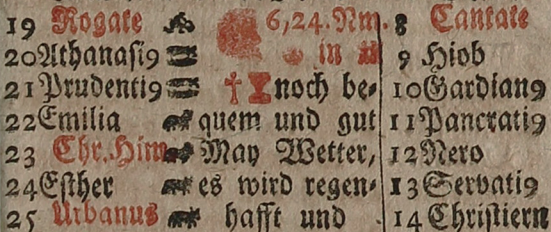 19 Rogate 6,24.Nm. 8 Cantate
20 Athanasi9 in 9 Hiob
21 Prudenti9 † noch be- 10 Gardian9
22 Emilia quem und gut 11 Pancrati9
23 Chr. Him May Wetter, 12 Nero
24 Esther es wird regen- 13 Servati9
25 Urbanus hafft und 14 Christiern